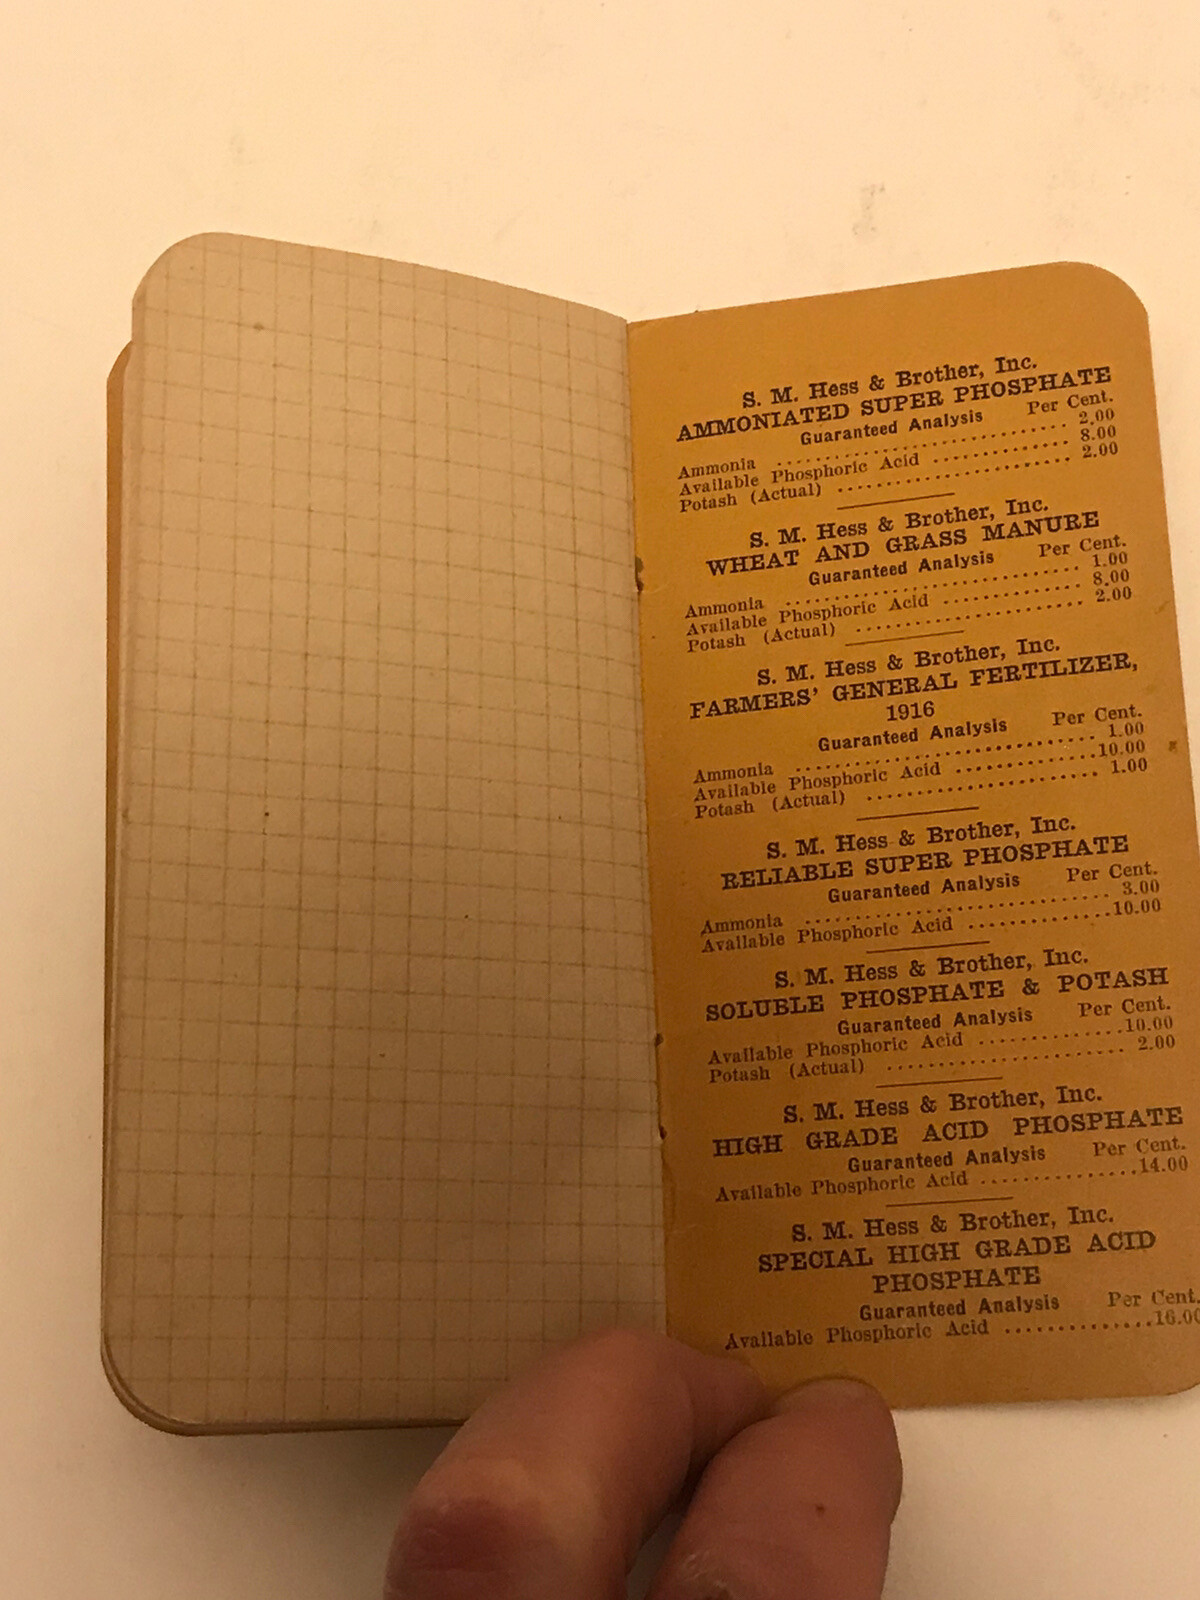 S. M. Hess & Brother, Inc.
AMMONIATED SUPER PHOSPHATE
Guaranteed Analysis Per Cent.
Ammonia .............................. 2.00
Available Phosphoric Acid .............. 8.00
Potash (Actual) ........................ 2.00
S. M. Hess & Brother, Inc.
WHEAT AND GRASS MANURE
Guaranteed Analysis Per Cent.
Ammonia .............................. 1.00
Available Phosphoric Acid .............. 8.00
Potash (Actual) ........................ 2.00
S. M. Hess & Brother, Inc.
FARMERS' GENERAL FERTILIZER,
1916
Guaranteed Analysis Per Cent.
Ammonia .............................. 1.00
Available Phosphoric Acid ..............10.00
Potash (Actual) ........................ 1.00
S. M. Hess & Brother, Inc.
RELIABLE SUPER PHOSPHATE
Guaranteed Analysis Per Cent.
Ammonia .............................. 3.00
Available Phosphoric Acid ..............10.00
S. M. Hess & Brother, Inc.
SOLUBLE PHOSPHATE & POTASH
Guaranteed Analysis Per Cent.
Available Phosphoric Acid ..............10.00
Potash (Actual) ........................ 2.00
S. M. Hess & Brother, Inc.
HIGH GRADE ACID PHOSPHATE
Guaranteed Analysis Per Cent.
Available Phosphoric Acid ..............14.00
S. M. Hess & Brother, Inc.
SPECIAL HIGH GRADE ACID
PHOSPHATE
Guaranteed Analysis Per Cent.
Available Phosphoric Acid ..............16.00